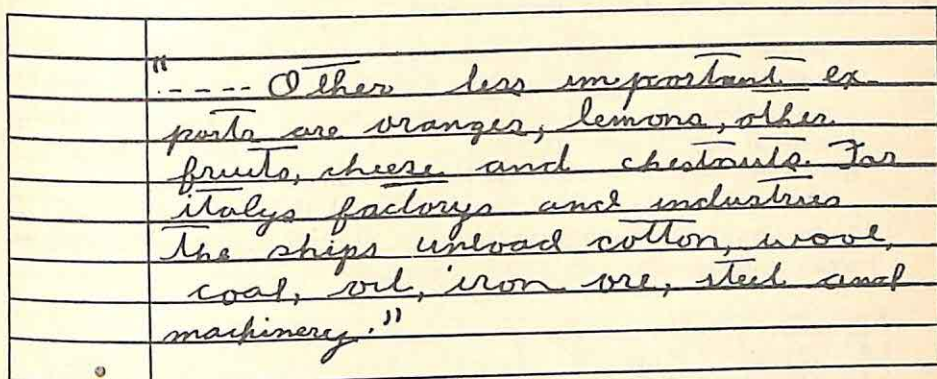 "----- Other less important ex-
ports are oranges, lemons, other
fruits, cheese and chestnuts. For
italys factorys and industries
the ships unload cotton, wool,
coal, oil, iron ore, steel and
machinery."